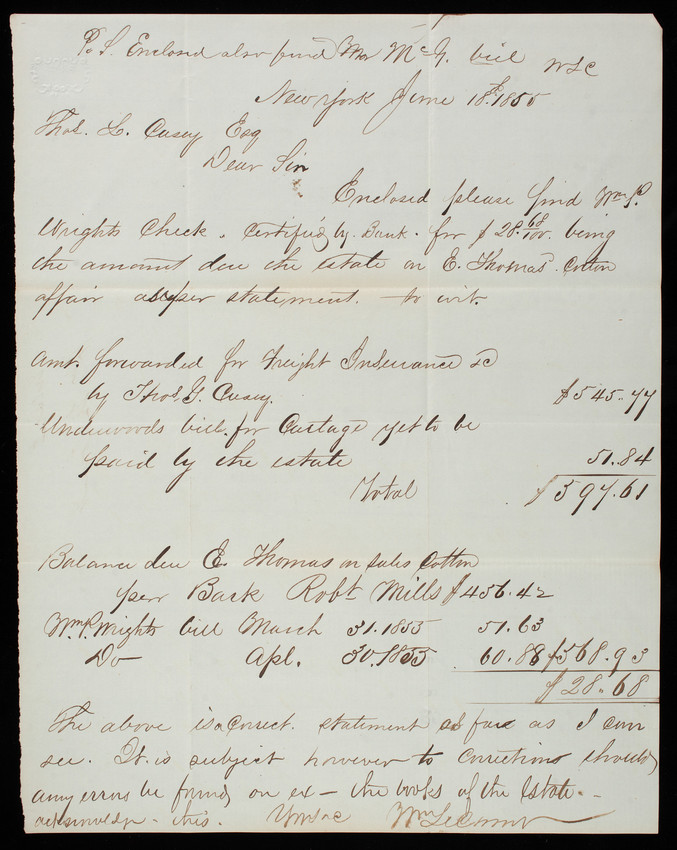 P.S. Enclosed also find Mr McG. bill WLC
New York June 18th. 1855
Thos. L. Casey Esq
Dear Sir
Enclosed please find Wm P.
Wrights Check. Certified by Bank. for $28.68/100. being
the amount due the estate on E. Thomas' Cotton
affair as per statement. to wit.
Amt. forwarded for Freight Insurance &c
by Thos. G. Casey. $545.77
Underwoods bill for Cartage yet to be
paid by the estate 51.84
Total $597.61
Balance due E. Thomas on sales Cotton
per Bark Robt Mills $456.42
Wm P. Wrights bill March 31. 1855 51.63
Do Apl. 30. 1855 60.88 $568.93
$28.68
The above is a Correct. statement as far as I can
see. It is subject however to corrections should
any errors be found on ex - the books of the Estate. -
acknowledge this. Yours &c Wm